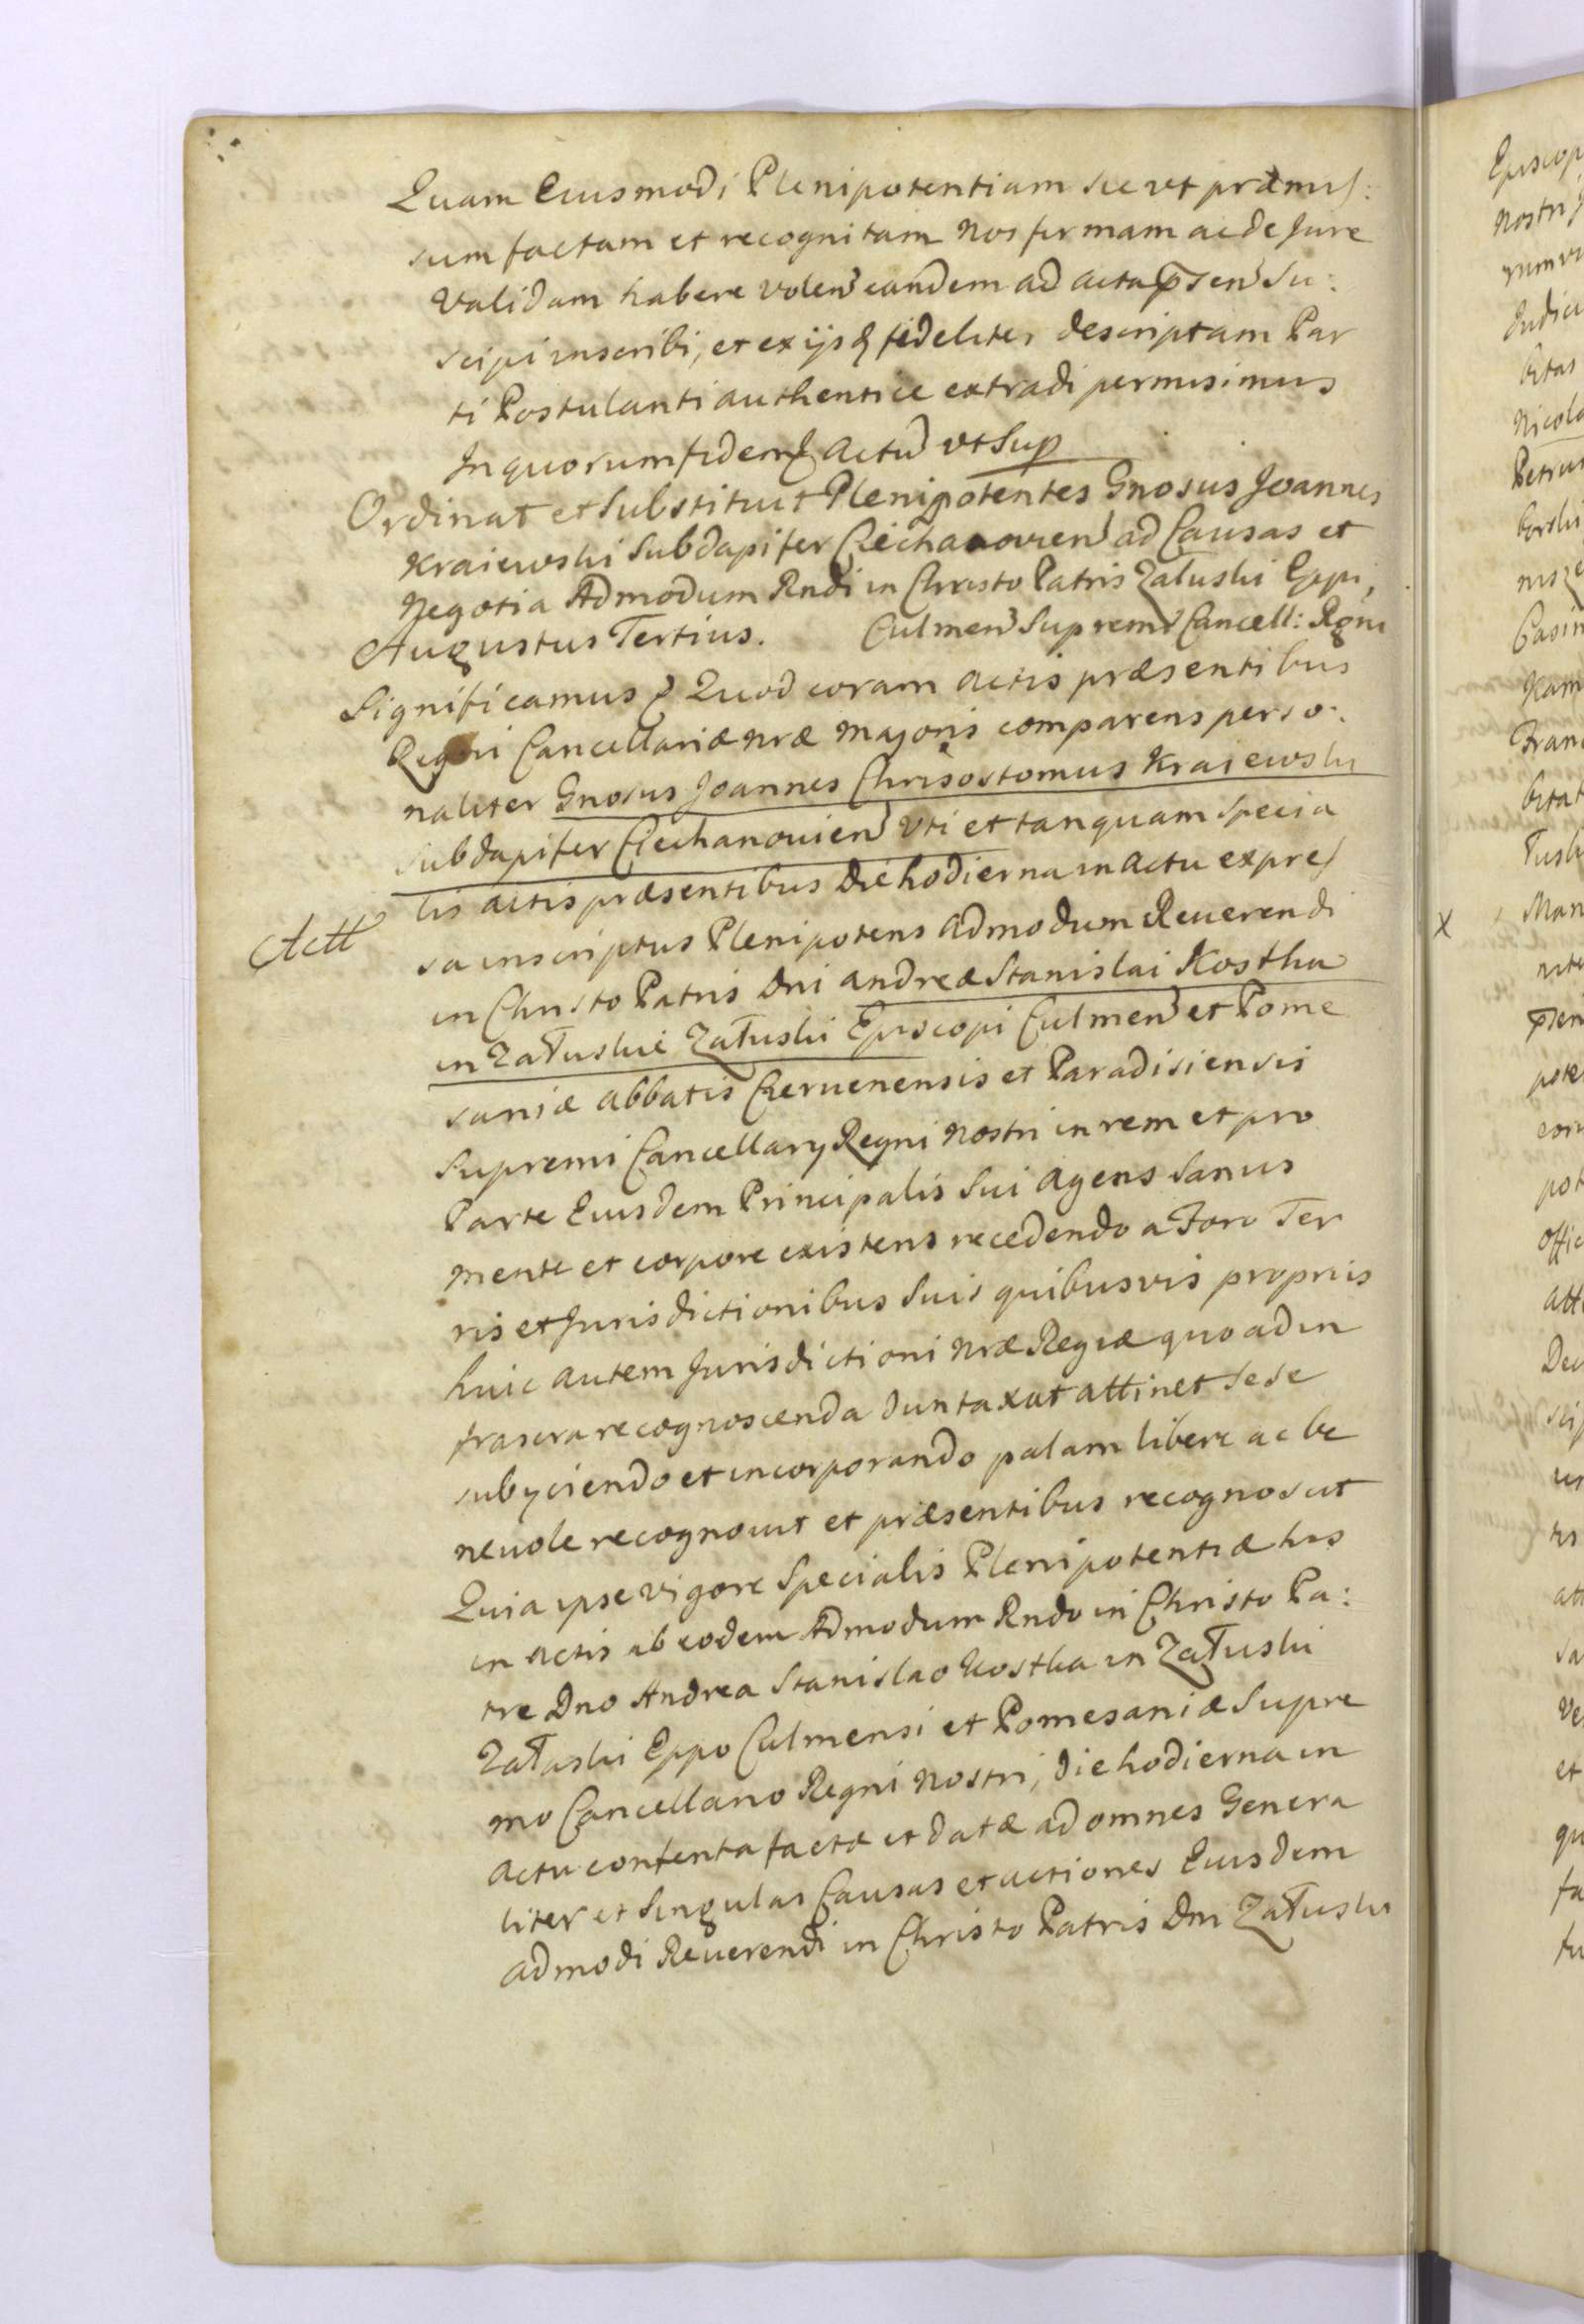 Quam Eiusmodi Plenipotentiam sic ut præmis:
sum factam et recognitam Nos firmam ac de Jure
Validam habere volen eandem ad acta pñsen Su:
scipi inscribi, et ex ijsq fideliter descriptam Par
ti Postulanti authentice extradi permisimus
In quorum fidem & Actū ut Sup
Ordinat et Substituit Plenipotentes Gnosus Joannes
Kraiewski Subdapifer Ciechanovien ad Causas et
Negotia Admodum Rndi in Christo Patris Załuski Eppi,
Augustus Tertius. Culmen Supremi Cancell: Rgni
Significamus & Quod coram actis præsentibus
Regni Cancellariæ nræ majoris comparens perso:
naliter Gnosus Joannes Chrisostomus Kraiewski
Subdapifer Ciechanouien uti et tanquam specia
lis actis præsentibus Die hodierna in actu expres
sa inscriptus Plenipotens Admodum Reuerendi
Actt
in Christo Patris Dni Andreæ Stanislai Kostka
in Załuskie Załuski Episcopi Culmen et Pome
saniæ abbatis Czeruenensis et Paradisiensis
Supremi Cancellarij Regni Nostri in rem et pro
Parte Eiusdem Principalis Sui Agens Sanus
mente et corpore existens recedendo a Foro Ter
ris et Jurisdictionibus Suis quibusvis proprijs
huic autem Jurisdictioni Nræ Regiæ quo ad in
frascra recognoscenda duntaxat attinet Sese
subijciendo et incorporando palam libere ac be
neuole recognouit et præsentibus recognoscit
Quia ipse vigore Specialis Plenipotentiæ his
in actis ab eodem Admodum Rndo in Christo Pa:
tre Dno Andrea Stanislao Kostka in Załuski
Załuski Eppo Culmensi et Pomesaniæ Supre
mo Cancellario Regni Nostri, die hodierna in
Actu contenta factæ et datæ ad omnes Genera
liter et Singulas Causas et actiones Eiusdem
admodi Reuerendi in Christo Patris Dni Załuski